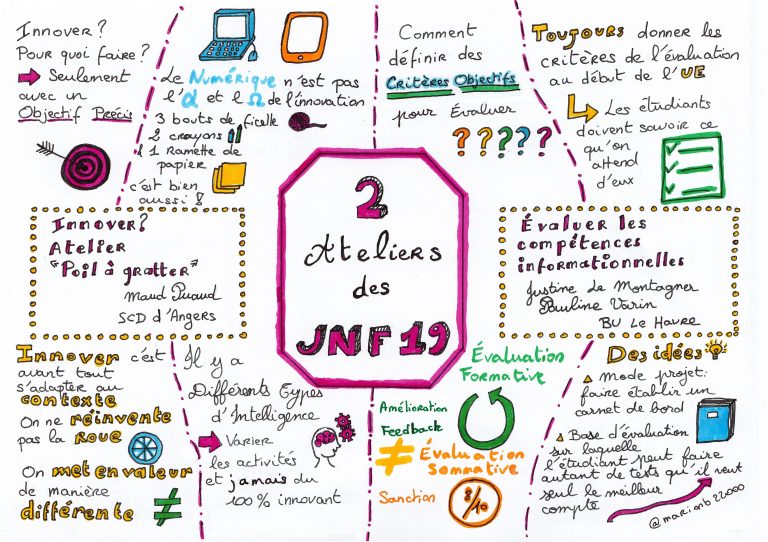 Innover?
Pour quoi faire?
Seulement
avec un
Objectif Précis
Le Numérique n'est pas
l'α et l'Ω de l'innovation
3 bouts de ficelle
2 crayons
1 Ramette de
papier
c'est bien
aussi !
Comment
définir des
Critères Objectifs
pour Évaluer
? ? ? ? ?
Toujours donner les
critères de l'évaluation
au début de l'UE
Les étudiants
doivent savoir ce
qu'on
attend
d'eux
Innover?
Atelier
"Poil à gratter"
Maud Puaud
SCD d'Angers
2
Ateliers
des
JNF 19
Évaluer les
compétences
informationnelles
Justine Le Montagner
Pauline Varin
BU Le Havre
Innover c'est
avant tout
s'adapter au
contexte
On ne réinvente
pas la roue
On met en valeur
de manière
différente ≠
Il y a
Différents Types
d'Intelligence
Varier
les activités
et jamais du
100% innovant
Évaluation
Formative
Amélioration
Feedback
≠ Évaluation
Sommative
Sanction
8/10
Des idées
Mode projet:
faire établir un
carnet de bord
Base d'évaluation
sur laquelle
l'étudiant peut faire
autant de tests qu'il veut
seul le meilleur
compte
@marionb22000